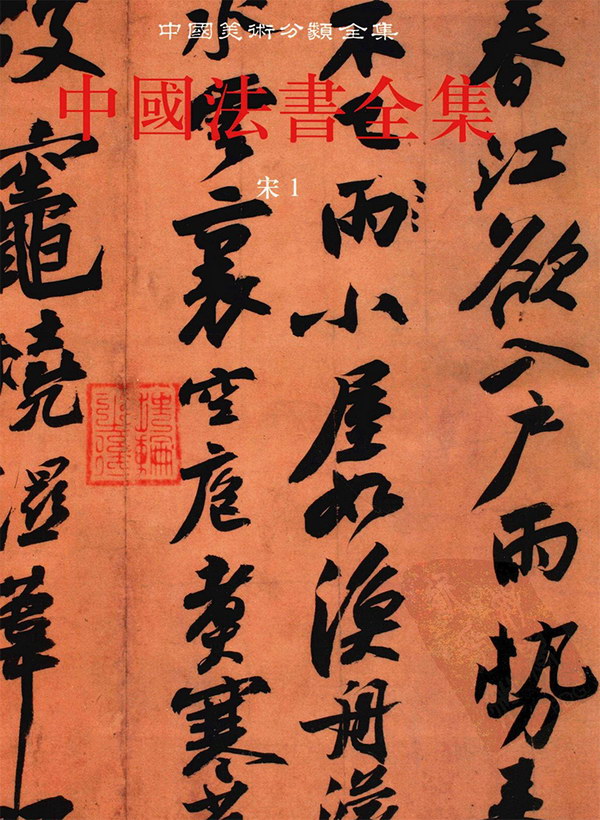 中國美術分類全集
中國法書全集
宋 1
春江欲入户雨勢来
不已雨小屋如漁舟濛
水雲裏空庖煮寒
破竈燒濕葦